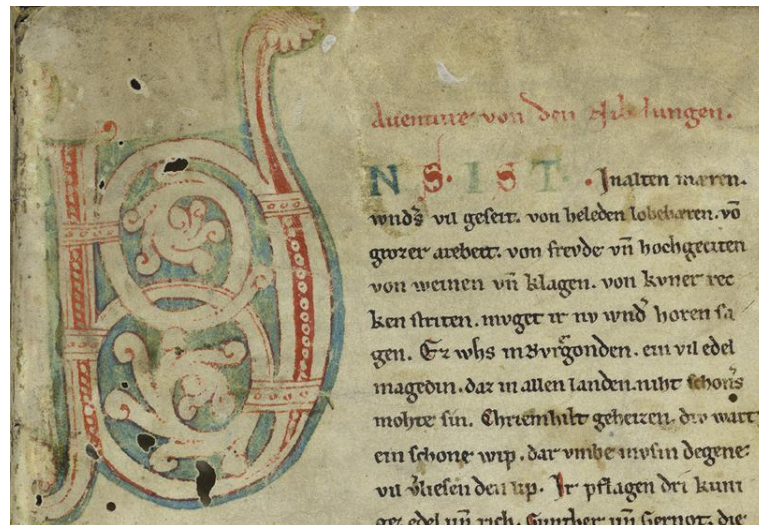 Auenture von den Nibelungen.
VNS IST. Jn alten mæren.
wnds vil geseit. von heleden lobebæren. vō
grozer arebeit. von frevde vn̄ hochgeciten
von weinen vn̄ klagen. von kvner rec
ken striten. mvget ir nv wnd horen sa
gen. Ez whs in Bvrgonden. ein vil edel
magedin. daz in allen landen. niht schoners
mohte sin. Chriemhilt geheizen. div wart
ein schone wip. dar vmbe mvsin degene
vil vliesen den lip. Ir pflagen dri kuni
ge. edel vn̄ rich. Gunther vn̄ Gernot. die